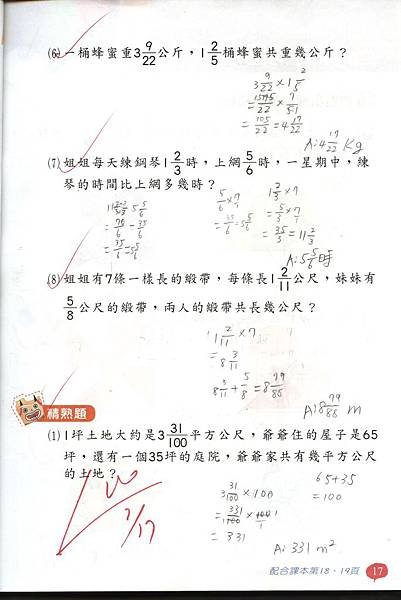 (6) 一桶蜂蜜重3 9/22 公斤，1 2/5 桶蜂蜜共重幾公斤？
3 9/22 × 1 2/5
= 105/22 = 4 17/22
A: 4 17/22 Kg
(7) 姐姐每天練鋼琴1 2/3 時，上網 5/6 時，一星期中，練
琴的時間比上網多幾時？
5/6 × 7/1
= 35/6 = 5 5/6
1 2/3 × 7
= 5/3 × 7/1
= 35/3 = 11 2/3
= 70/6 - 35/6
= 35/6 = 5 5/6
A: 5 5/6 時
(8) 姐姐有7條一樣長的緞帶，每條長1 2/11 公尺，妹妹有
5/8 公尺的緞帶，兩人的緞帶共長幾公尺？
1 2/11 × 7
= 8 3/11
8 3/11 + 5/8 = 8 79/88
A: 8 79/88 m
精熟題
(1) 1坪土地大約是3 31/100 平方公尺，爺爺住的屋子是65
坪，還有一個35坪的庭院，爺爺家共有幾平方公尺
的土地？
65+35
= 100
3 31/100 × 100
= 331/100 × 100/1
= 331
A: 331 m²
100
1/17
配合課本第18、19頁
17